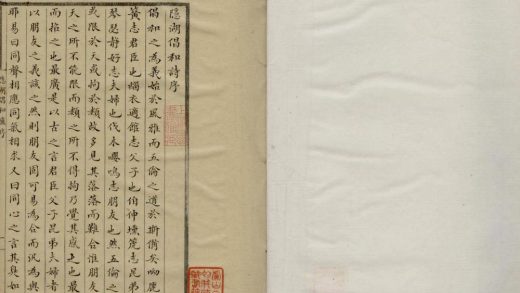 隱湖倡和詩序
倡和之為義始於風雅而五倫之道於斯備矣呦鹿
簧志君臣也緇衣適館志父子也伯仲壎箎志兄弟
琴瑟靜好志夫婦也伐木嚶鳴志朋友也然五倫之
或限於天或拘於類故多見其落落而難合惟朋友
天之所不能限而類之所不得拘乃覺其感之也最
而招之也最廣是以古之言君臣父子昆弟夫婦者
以朋友之義該之然則朋友固可易為合而況為與
耶易曰同聲相應同氣相求又曰同心之言其臭如